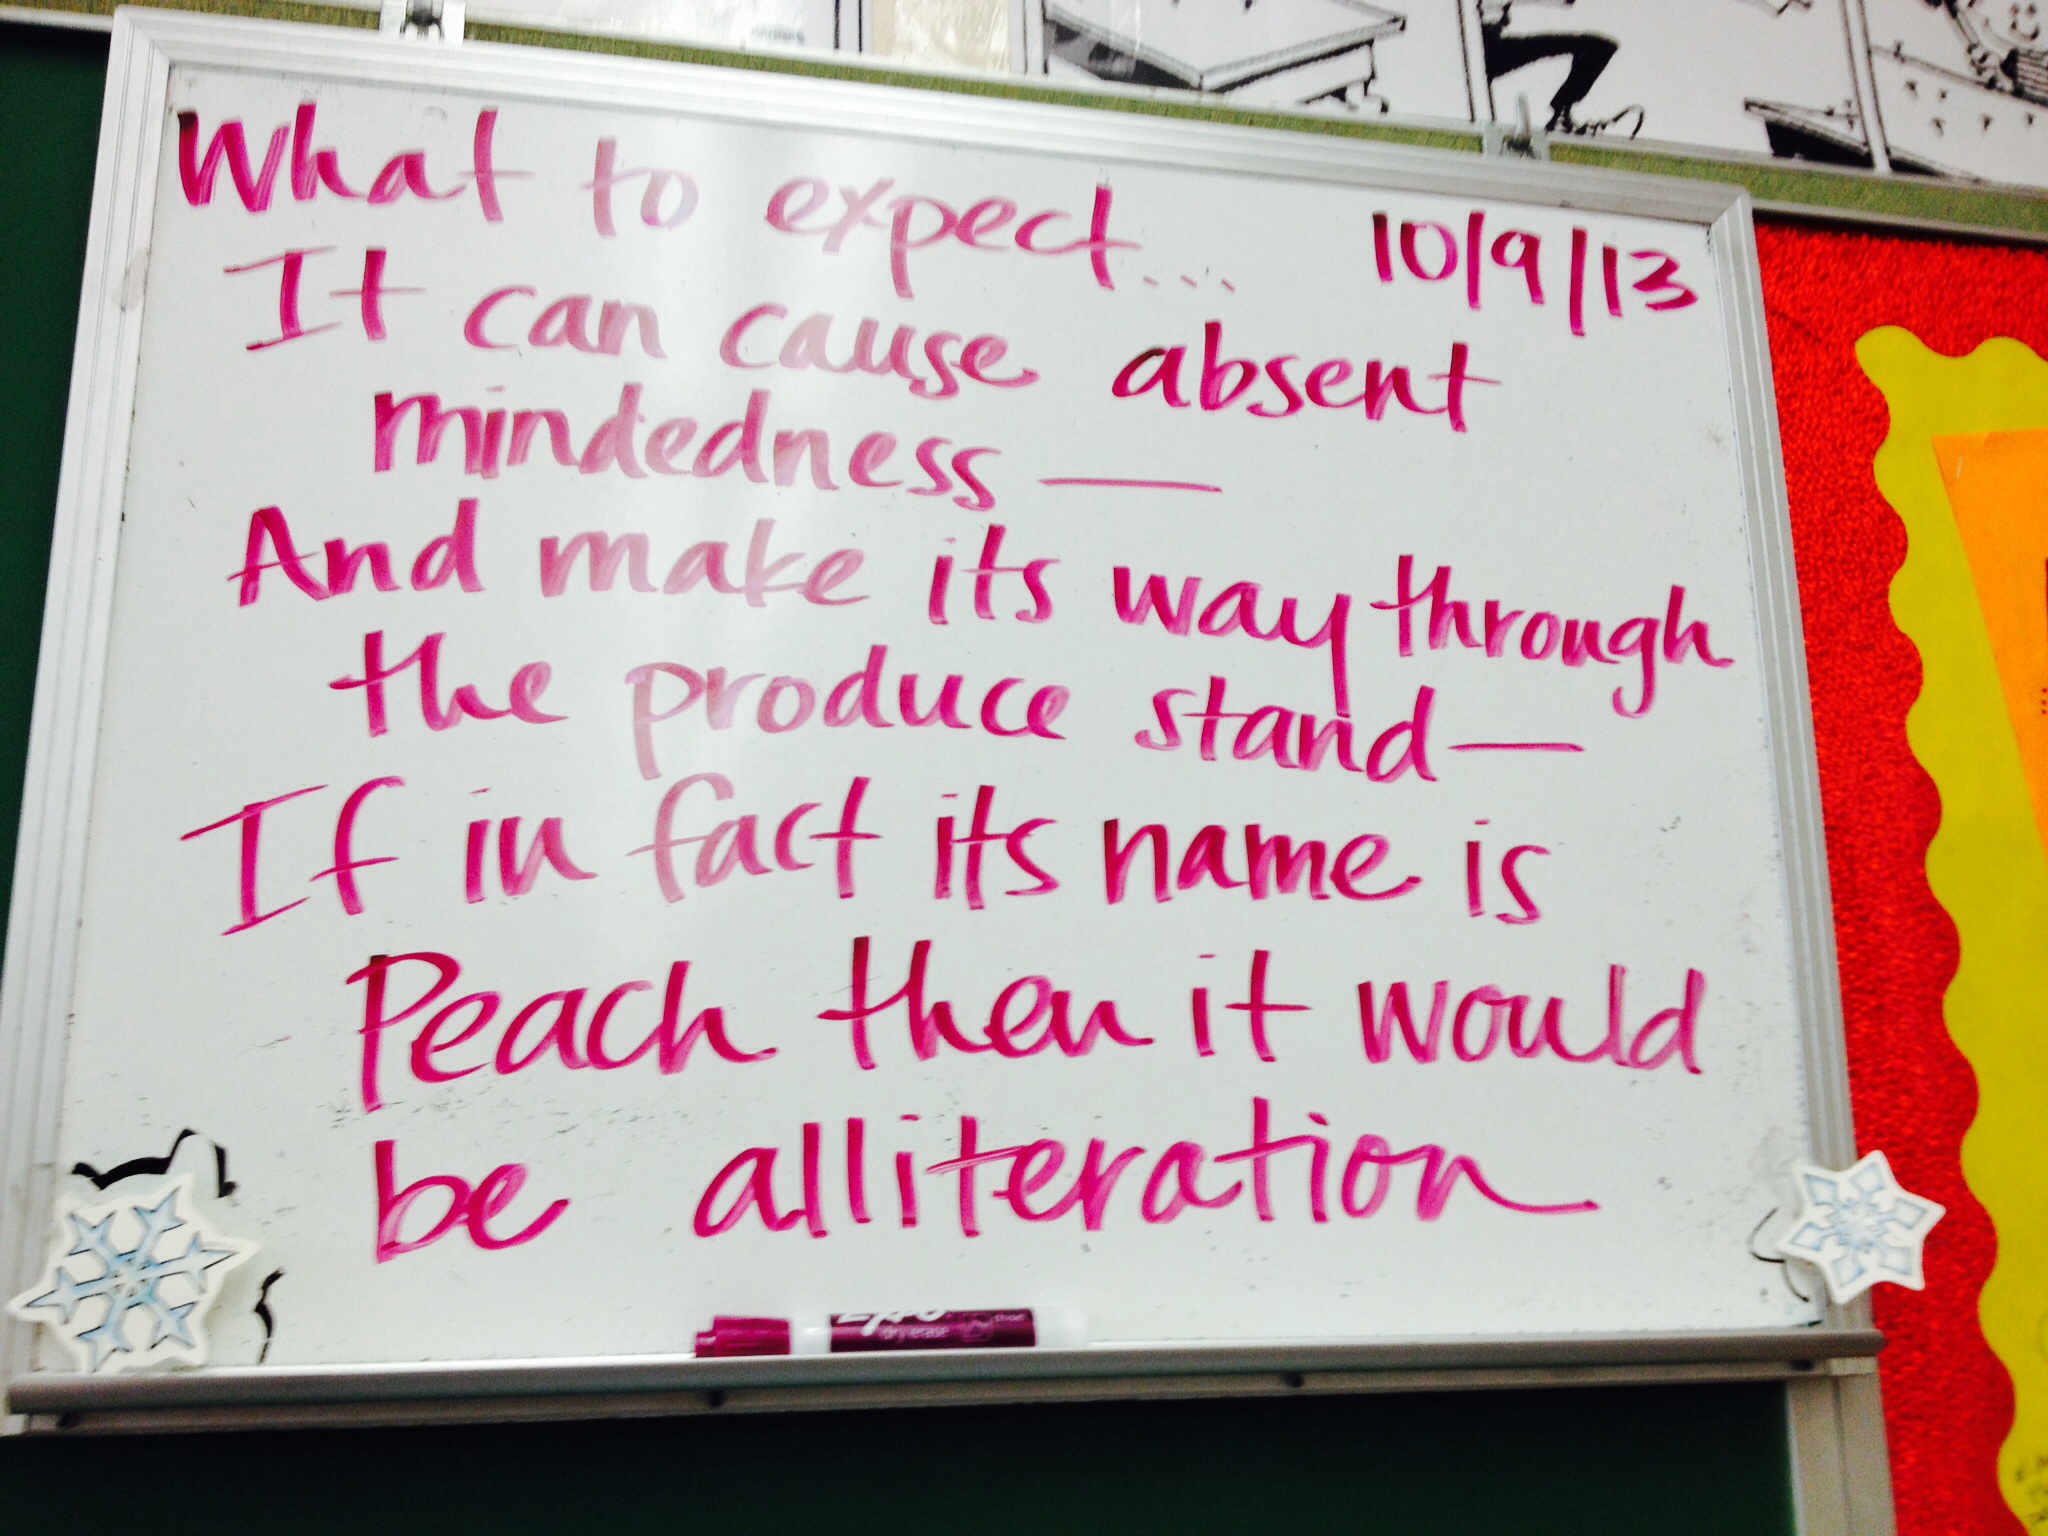 What to expect... 10/9/13
It can cause absent
mindedness —
And make its way through
the produce stand —
If in fact its name is
Peach then it would
be alliteration
EXPO
dry erase